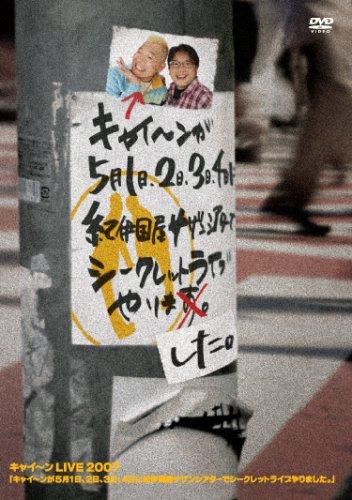 DVD
VIDEO
キャイ〜ンが
5月1日、2日、3日、4日に
紀伊国屋サザンシアターで
シークレットライブ
やります。
した。
キャイ〜ン LIVE 2007
「キャイ〜ンが5月1日、2日、3日、4日に紀伊國屋サザンシアターでシークレットライブやりました。」